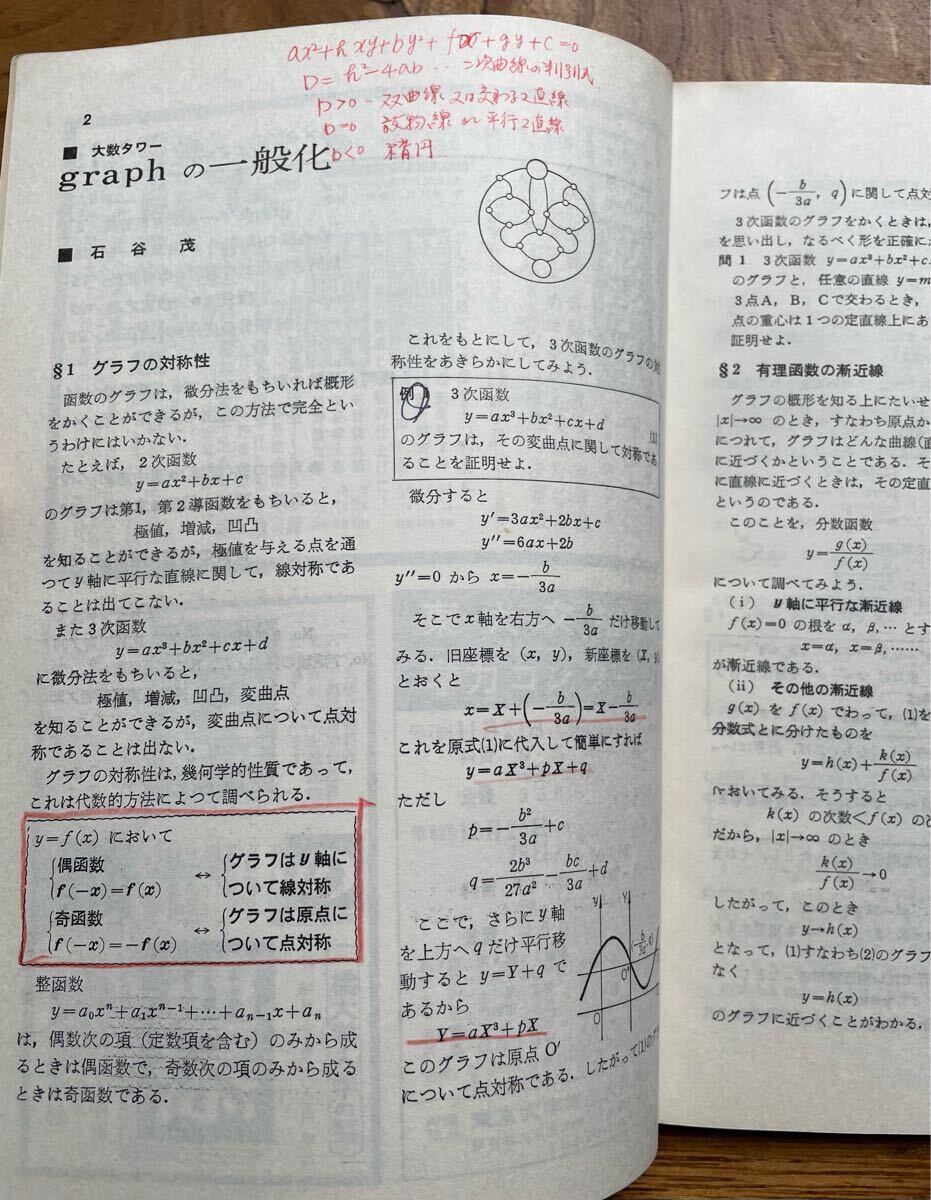 ax²+hxy+by²+fx+gy+c=0
D=h²-4ab … 二次曲線の判別式
D>0 — 双曲線 又は交わる2直線
D=0 放物線 or 平行2直線
D<0 楕円
2
■ 大数タワー
graph の一般化
■ 石谷 茂
§1 グラフの対称性
函数のグラフは，微分法をもちいれば概形
をかくことができるが，この方法で完全とい
うわけにはいかない．
たとえば，2次函数
y=ax²+bx+c
のグラフは第1，第2導函数をもちいると，
極値，増減，凹凸
を知ることができるが，極値を与える点を通
つてy軸に平行な直線に関して，線対称であ
ることは出てこない．
また3次函数
y=ax³+bx²+cx+d
に微分法をもちいると，
極値，増減，凹凸，変曲点
を知ることができるが，変曲点について点対
称であることは出ない．
グラフの対称性は，幾何学的性質であって，
これは代数的方法によつて調べられる．
y=f(x) において
偶函数 ↔ グラフはy軸に
f(-x)=f(x) ついて線対称
奇函数 ↔ グラフは原点に
f(-x)=-f(x) ついて点対称
整函数
y=a₀xⁿ+a₁xⁿ⁻¹+…+aₙ₋₁x+aₙ
は，偶数次の項（定数項を含む）のみから成
るときは偶函数で，奇数次の項のみから成る
ときは奇函数である．
これをもとにして，3次函数のグラフの対
称性をあきらかにしてみよう．
例 3次函数
y=ax³+bx²+cx+d (1)
のグラフは，その変曲点に関して対称であ
ることを証明せよ．
微分すると
y′=3ax²+2bx+c
y″=6ax+2b
y″=0 から x=-b/3a
そこでx軸を右方へ -b/3a だけ移動して
みる．旧座標を (x, y)，新座標を (X, y)
とおくと
x=X+(-b/3a)=X-b/3a
これを原式(1)に代入して簡単にすれば
y=aX³+pX+q
ただし
p=-b²/3a+c
q=2b³/27a²-bc/3a+d
ここで，さらにy軸
を上方へqだけ平行移
動すると y=Y+q で
あるから
Y=aX³+pX
このグラフは原点 O′
について点対称である．したがって(1)のグ
y Y
(-b/3a, q)
O′ X
O x
フは点 (-b/3a, q) に関して点対
3次函数のグラフをかくときは，
を思い出し，なるべく形を正確に
問1 3次函数 y=ax³+bx²+c
のグラフと，任意の直線 y=m
3点A，B，Cで交わるとき，
点の重心は1つの定直線上にあ
証明せよ．
§2 有理函数の漸近線
グラフの概形を知る上にたいせ
|x|→∞ のとき，すなわち原点か
につれて，グラフはどんな曲線(直
に近づくかということである．そ
に直線に近づくときは，その定直
というのである．
このことを，分数函数
y=g(x)/f(x)
について調べてみよう．
(i) y軸に平行な漸近線
f(x)=0 の根を α, β, … とす
x=α, x=β, ……
が漸近線である．
(ii) その他の漸近線
g(x) を f(x) でわって，(1)を
分数式とに分けたものを
y=h(x)+k(x)/f(x)
においてみる．そうすると
k(x) の次数<f(x) の
だから，|x|→∞ のとき
k(x)/f(x)→0
したがって，このとき
y→h(x)
となって，(1)すなわち(2)のグラフ
なく
y=h(x)
のグラフに近づくことがわかる，